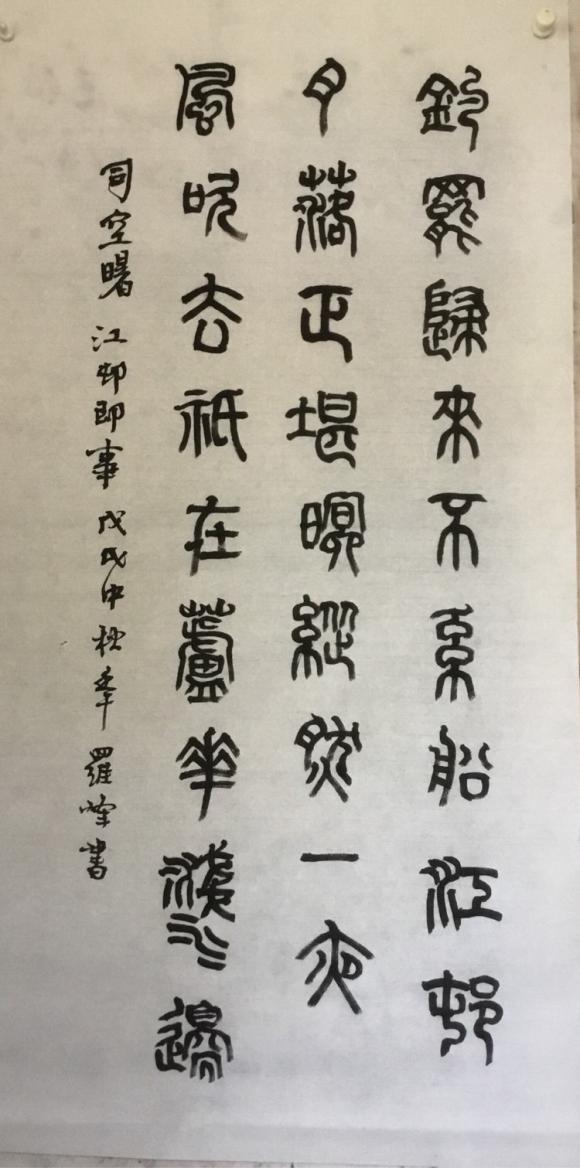 釣罷歸來不系船江邨
月落正堪眠縱然一夜
風吹去祇在蘆花淺水邊
司空曙 江邨即事 戊戌中秋季 羅峰書